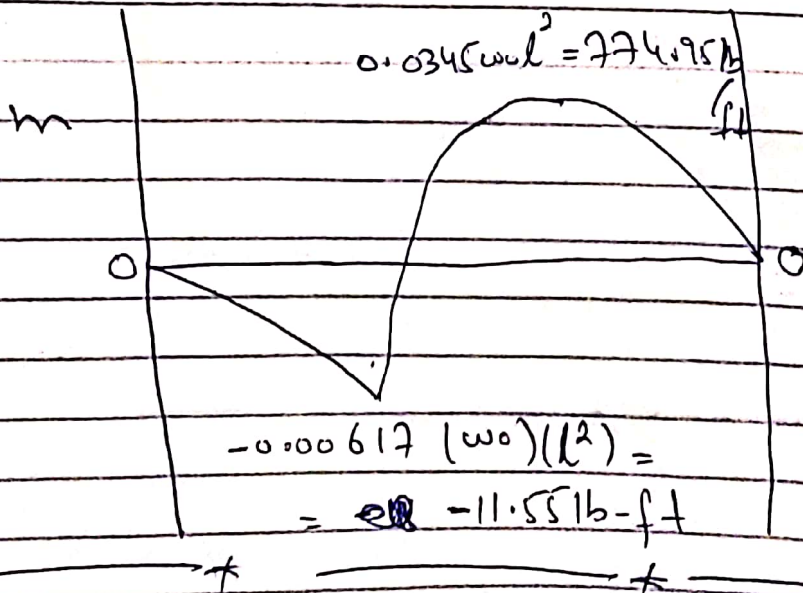 0.0345wol² = 774.95lb
/ft
m
0
0
-0.00617 (wo)(l²) =
= -11.55 lb-ft